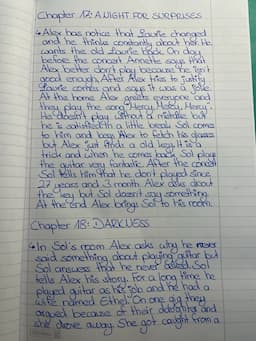 Chapter 17: A NIGHT FOR SURPRISES
↳ Alex has notice that Laurie changed
and he thinks constantly about her. He
wants the old Laurie back. On day
before the concert Annette says that
Alex better don't play because he isn't
good enough. After Alex tries to justify
Laurie comes and says it was a joke.
At the home Alex greets everyone and
they play the song "Mercy, Mercy, Mercy".
He doesn't play without a mistake but
he is satisfied in a little break. Sol comes
to him and beg Alex to fetch his glasses
but Alex just finds a old key. It is a
trick and when he comes back, Sol plays
the guitar very fantastic. After the concert
Sol tells him that he don't played since
27 years and 3 month. Alex asks about
the key but Sol doesn't say something.
At the end Alex brings Sol to his room.
Chapter 18: DARKNESS
↳ In Sol's room Alex asks why he never
said something about playing guitar but
Sol answers that he never asked. Sol
tells Alex his story. For a long time he
played guitar as his job and he had a
wife named Ethel. On one day they
argued because of their daughter and
she drove away. She got caught from a